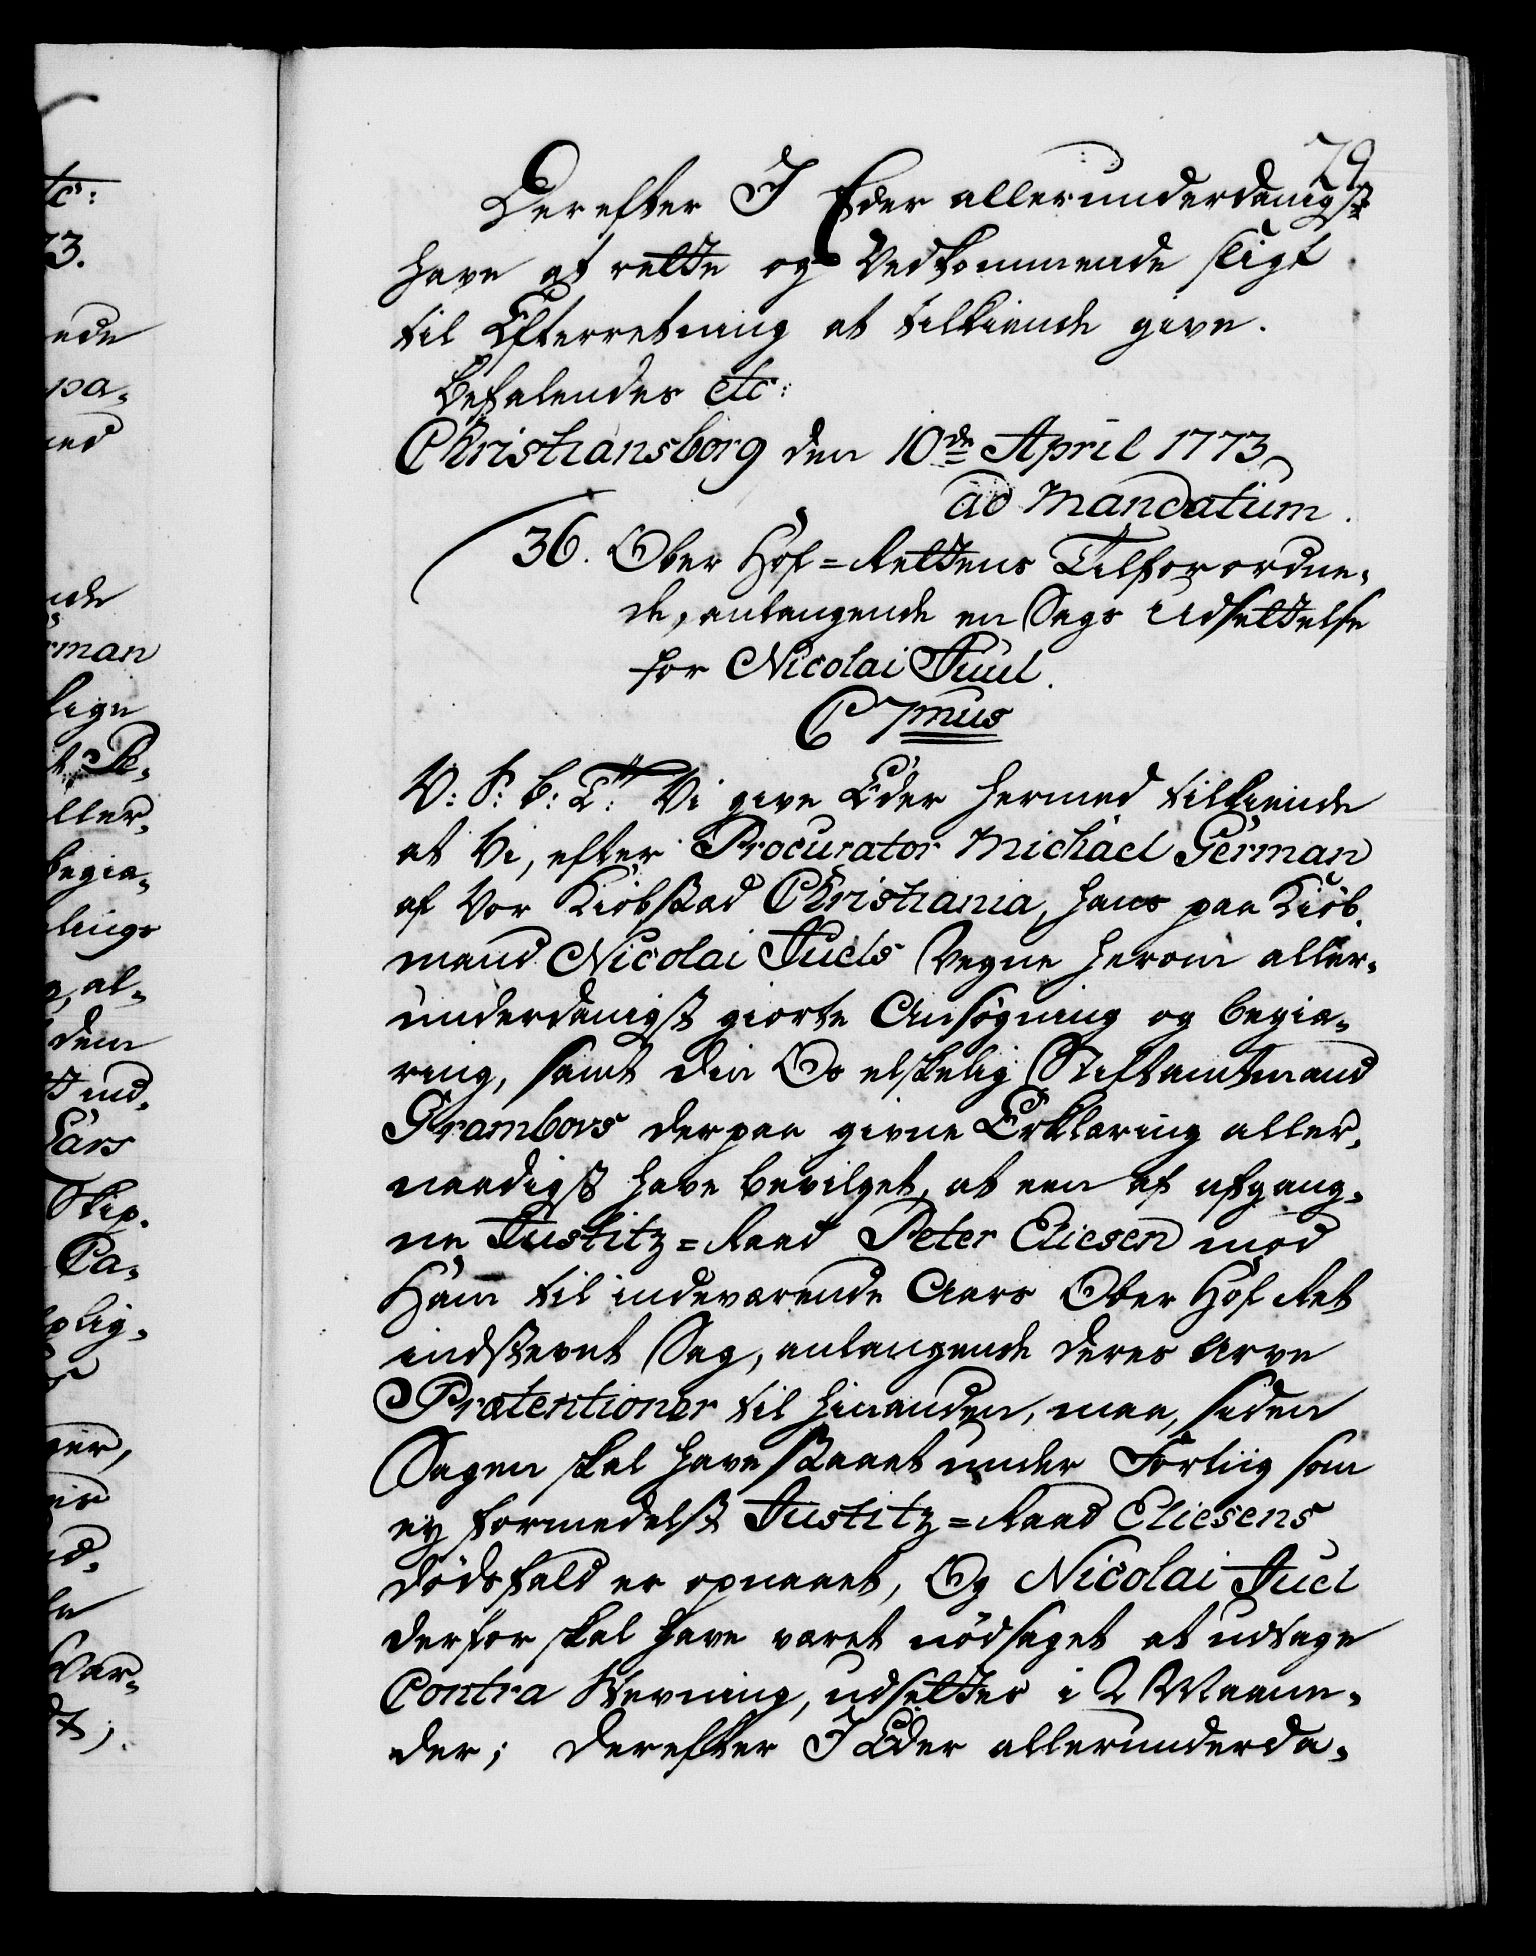 29
Derefter I Eder allerunderdanigst
have at rette og Vedkommende sligt
til Efterretning at tilkiende give.
Befalendes etc:
Christiansborg den 10de April 1773
ad Mandatum.
36. Ober Hof=Rettens Tilforordne,
de, anlangende en Sags Udsettelse
for Nicolai Juul.
C 7mus
V: S: B: T: Vi give Eder hermed tilkiende
at Vi, efter Procurator Michäel German
af Vor Kiöbstad Christiania, hans paa Kiöb,
mand Nicolai Juels Vegne herom aller,
underdanigst giorte Ansøgning og begiæ,
ring, samt din Os elskelig Stiftamtmand
Grambovs derpaa givne Erklæring aller,
naadigst have bevilget, at een af afgang,
ne Justitz=Raad Peter Eliesen mod
Ham til indeværende Aars Ober Hof Ret
indstevnt Sag, anlangende deres Arve
Prætentioner til hinanden, maa, siden
Sagen skal have staaet under Forliig som
ey formedelst Justitz=Raad Eliesens
dödsfald er opnaaet, Og Nicolai Juel
derfor skal have været nödsaget at udtage
Contra Stevning, udsettes i 2 Maane,
der; derefter I Eder allerunderda,